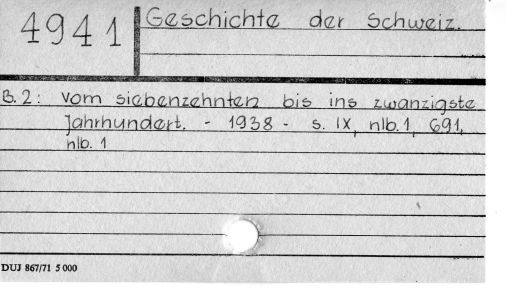 4941
Geschichte der Schweiz.
B. 2: Vom siebenzehnten bis ins zwanzigste
Jahrhundert. - 1938 - S. IX, nlb. 1, 691,
nlb. 1
DUJ 867/71 5 000